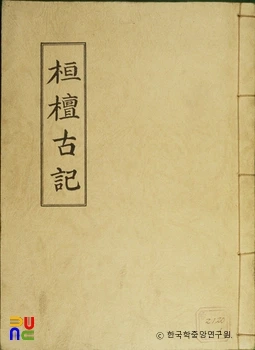 桓檀古記
ⓒ 한국학중앙연구원.